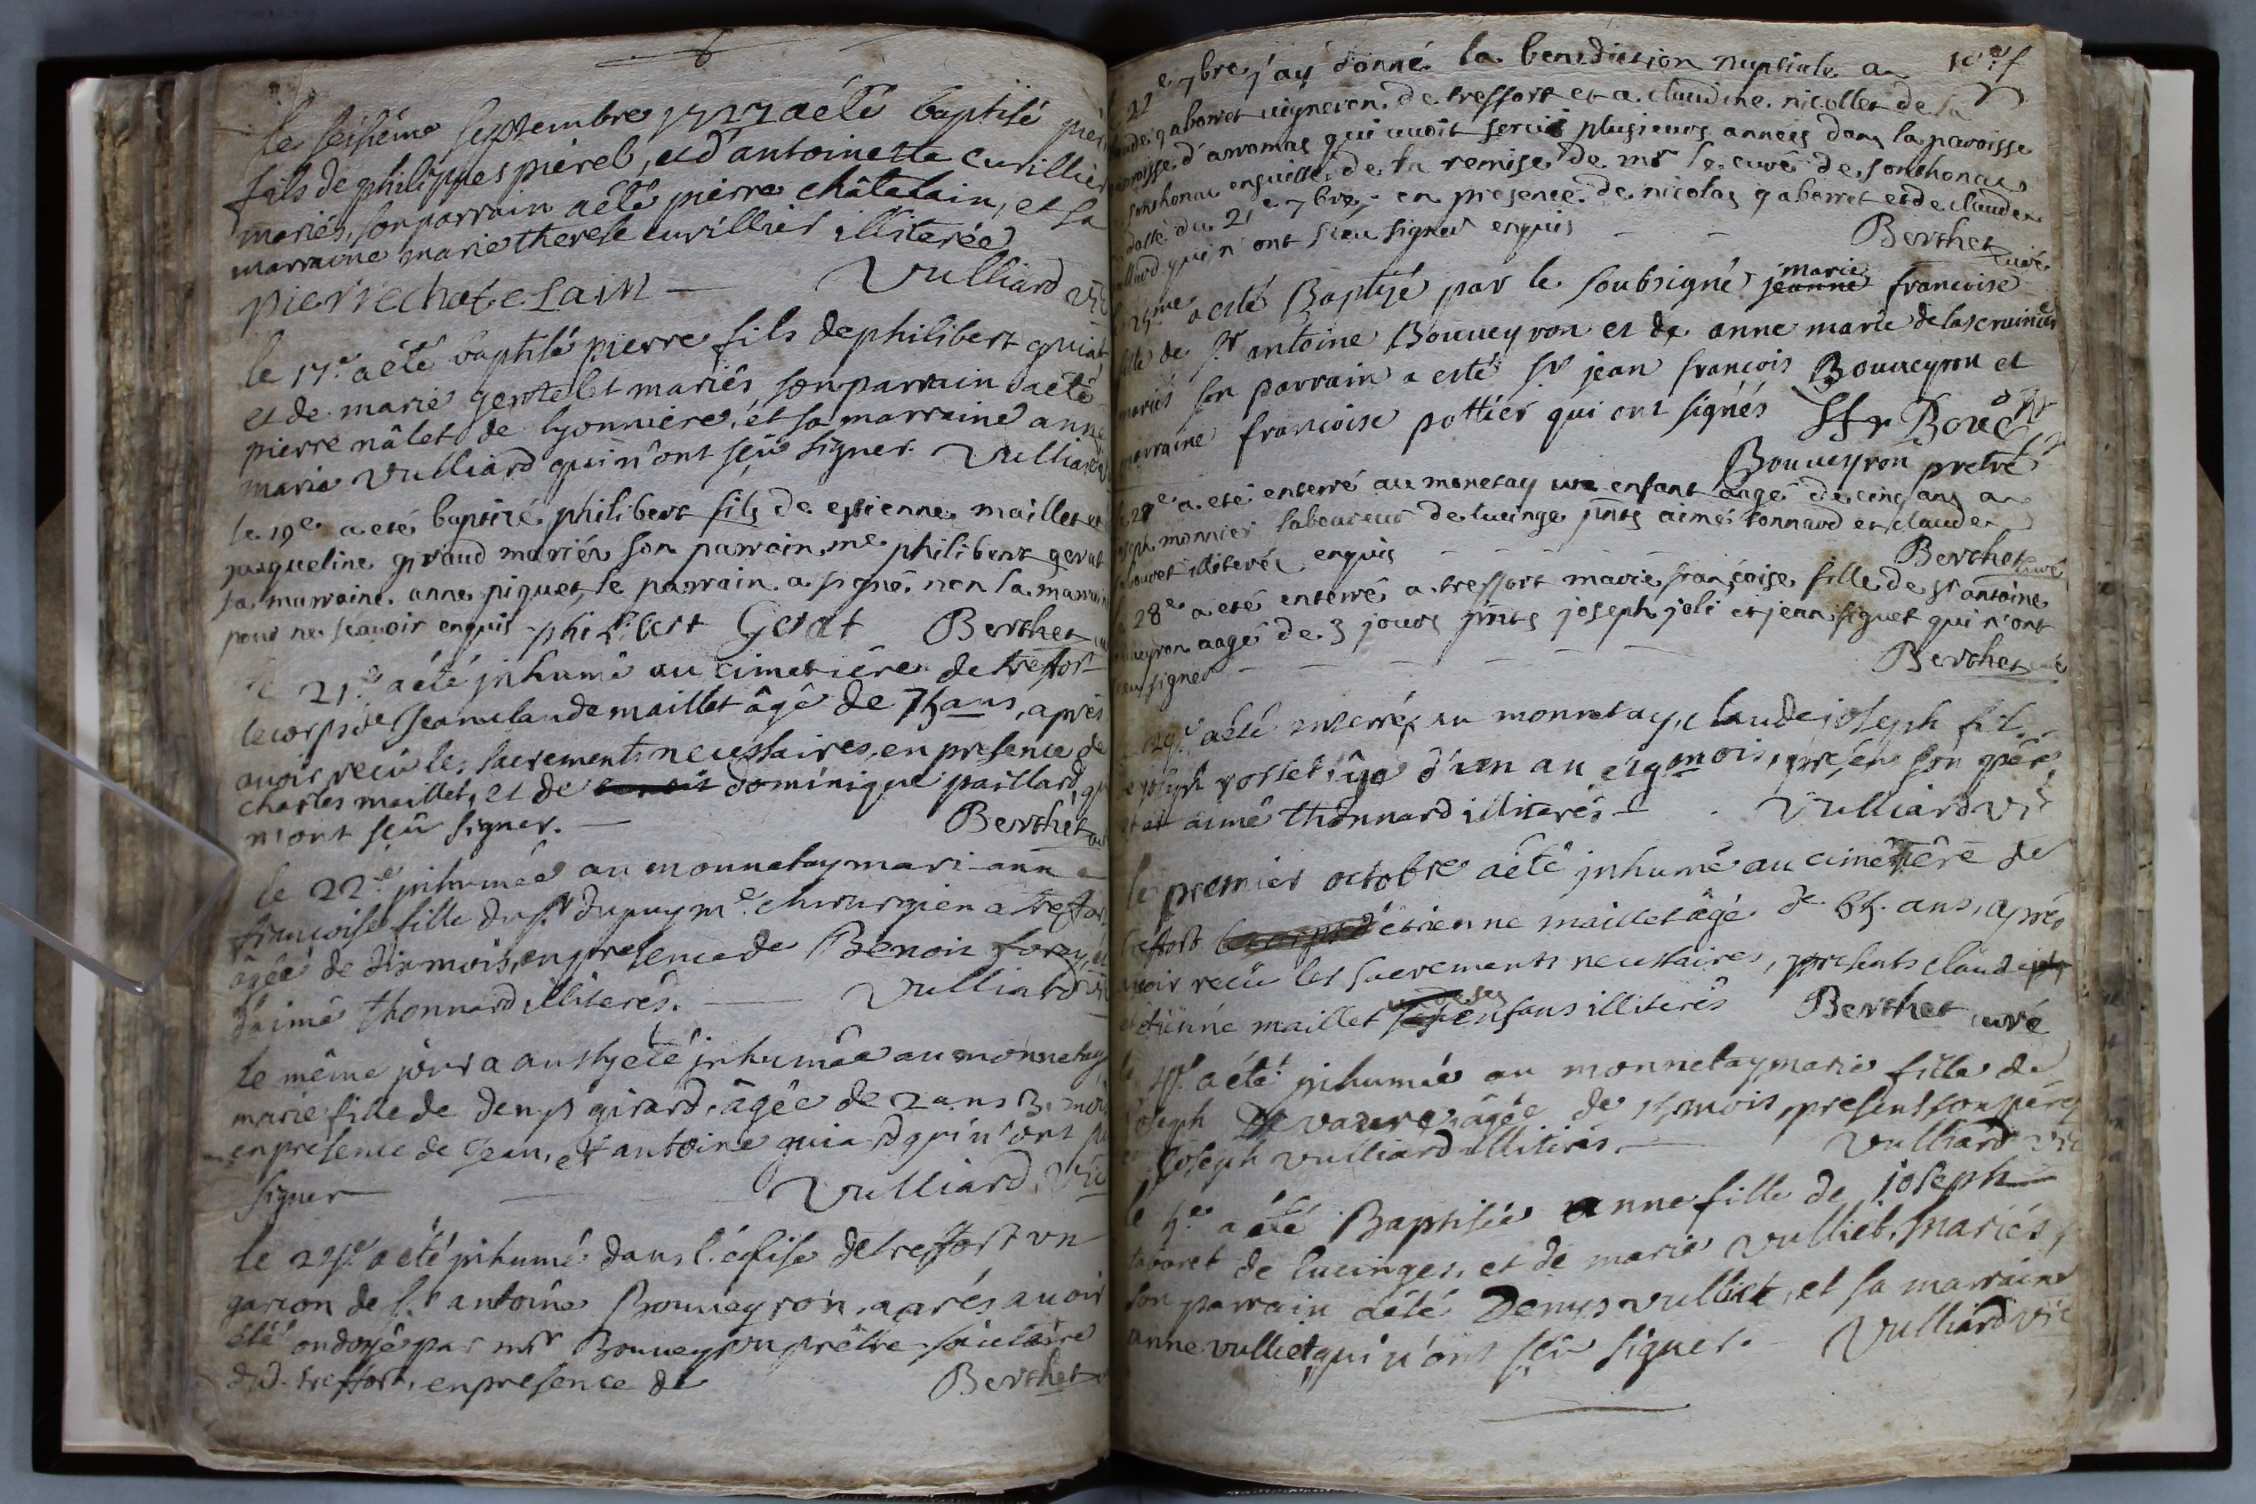 le seisiéme septembre 1727 a été baptisé pier
fils de philippes pierel, et d'antoinette curillier
mariés, son parrain a été pierre châtelain, et sa
marraine marie therese curillier illiterée
pierre chatelain — Vulliard vic
le 17e a été baptisé pierre fils de philibert guiat
et de marie gentelet mariés, son parrain a été
pierre nâlet de lyonniere, et sa marraine anne
marie Vulliard qui n'ont sçû signer. Vulliard
le 19e a eté baptizé philibert fils de estienne maillet et
jaqueline giraud mariés son parrain me philibert gerat
sa marraine anne piguet, le parrain a signé non la marraine
pour ne scavoir enquis philibert Gerat Berthet
le 21e a été inhumé au cimetiére de treffort
le corps de Jean claude maillet âgé de 75 ans, aprés
avoir reçû les sacrements necessaires, en presence de
charles maillet, et de dominique paillard, qui
n'ont sçû signer. — Berthet curé
le 22e inhumée au monnetay mari-anne
francoise fille du sr dupuy me chirurgien a treffort
âgée de dix mois, en presence de Benoit forey, et
d'aimé thonnard illiterés. — Vulliard vic
le même jour a aussy eté inhumée au monnetay
marie fille de denys girard, âgée de 2 ans 3 mois
en presence de Jean, et antoine guiard qui n'ont sçu
signer — Vulliard, vic
le 25e a été inhumé dans l'église de treffort un
garcon de sr antoine Bouveyron, aprés avoir
été ondoyé par mr Bouveyron prêtre societaire
dud. treffort, en presence de Berthet
10e f
22e 7bre j'ay donné la benediction nuptiale a
claude gaborret vigneron de treffort et a claudine nicollet de la
paroisse d'aromas qui avoit servie plusieurs années dans la paroisse
de sonthonac ensuitte de la remise de mr le curé de sonthonac
datté du 21e 7bre, en presence de nicolas gaborret et de claude
Vulliard qui n'ont sceu signer enquis — — Berthet curé
25me a esté Baptisé par le soubsigné jeanne marie francoise
fille de sr antoine Bouveyron et de anne marie de lascruines
mariés son parrain a esté sr jean françois Bouveyron et
marraine francoise pottier qui ont signés
Bouveyron pretre
28e a eté enterré au monetay une enfant aagé de cinq ans a
joseph monnier laboureur de lucinge pnts aimé tonnard et claude
illiterés enquis — — — — — Berthet curé
28e a eté enterré a treffort marie françoise fille de sr antoine
bouveyron aagé de 3 jours pnts joseph joli et jean siguet qui n'ont
sceu signer — — — — — — Berthet curé
29e a été enterré au monnetay, claude joseph fil
de joseph rosset âge d'un an et 9 mois, presén son pére,
et aimé thonnard illiterés — Vulliard vic
le premier octobre a été inhumé au cimetiére de
treffort etienne maillet âgé de 65 ans, aprés
avoir reçû les sacrements necessaires, presents claude
et etiénne maillet un de ses enfans illiterés Berthet curé
le 4e a été inhumée au monnetay, marie fille de
joseph Devaure, âgée de 15 mois, present son pére
et joseph Vulliard illiterés. — Vulliard vic
le 5e a été Baptisée anne fille de joseph
taboret de lucinges, et de marie Vulliet, mariés,
son parrain a été Denys vulliet, et sa marraine
anne vulliet, qui n'ont sçû signer. Vulliard vic